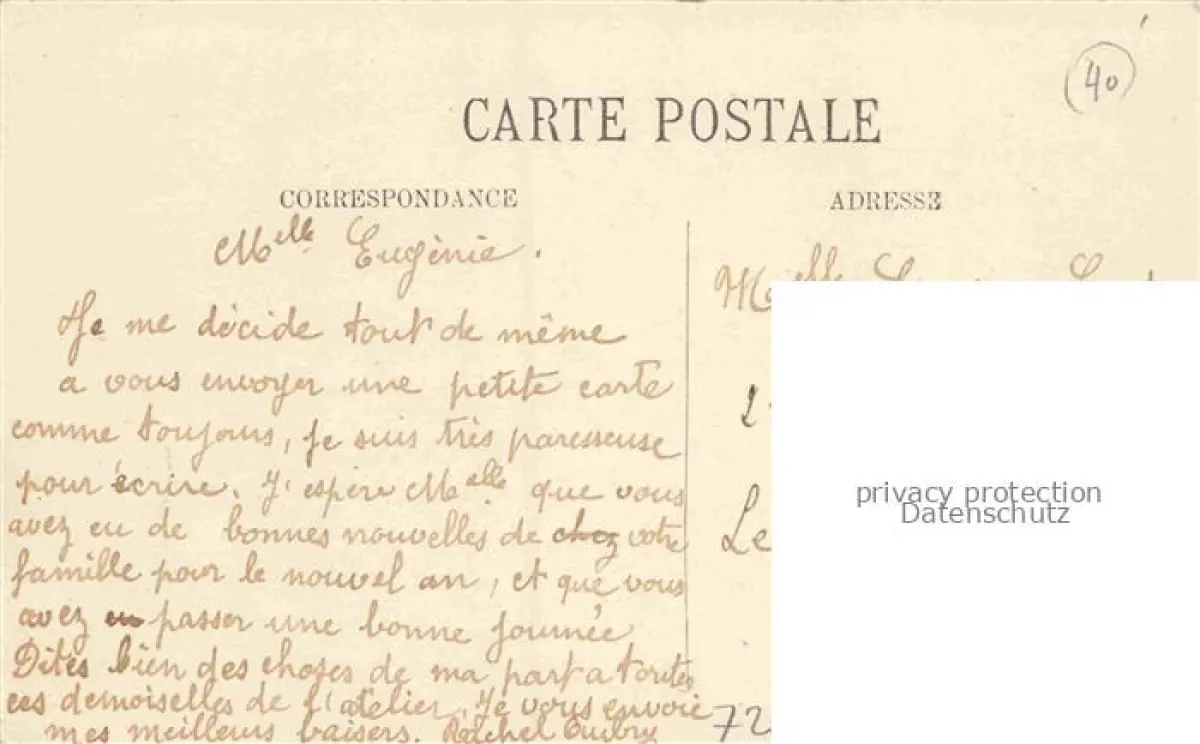 40
CARTE POSTALE
CORRESPONDANCE
ADRESSE
Melle Eugénie.
Je me décide tout de même
a vous envoyer une petite carte
comme toujours, je suis très paresseuse
pour écrire. J'espère Melle que vous
avez eu de bonnes nouvelles de chez votre
famille pour le nouvel an, et que vous
avez en passer une bonne journée
Dites bien des choses de ma part a toutes
ces demoiselles de l'atelier. Je vous envoie
mes meilleurs baisers. Rachel
Melle
Le
72
privacy protection
Datenschutz